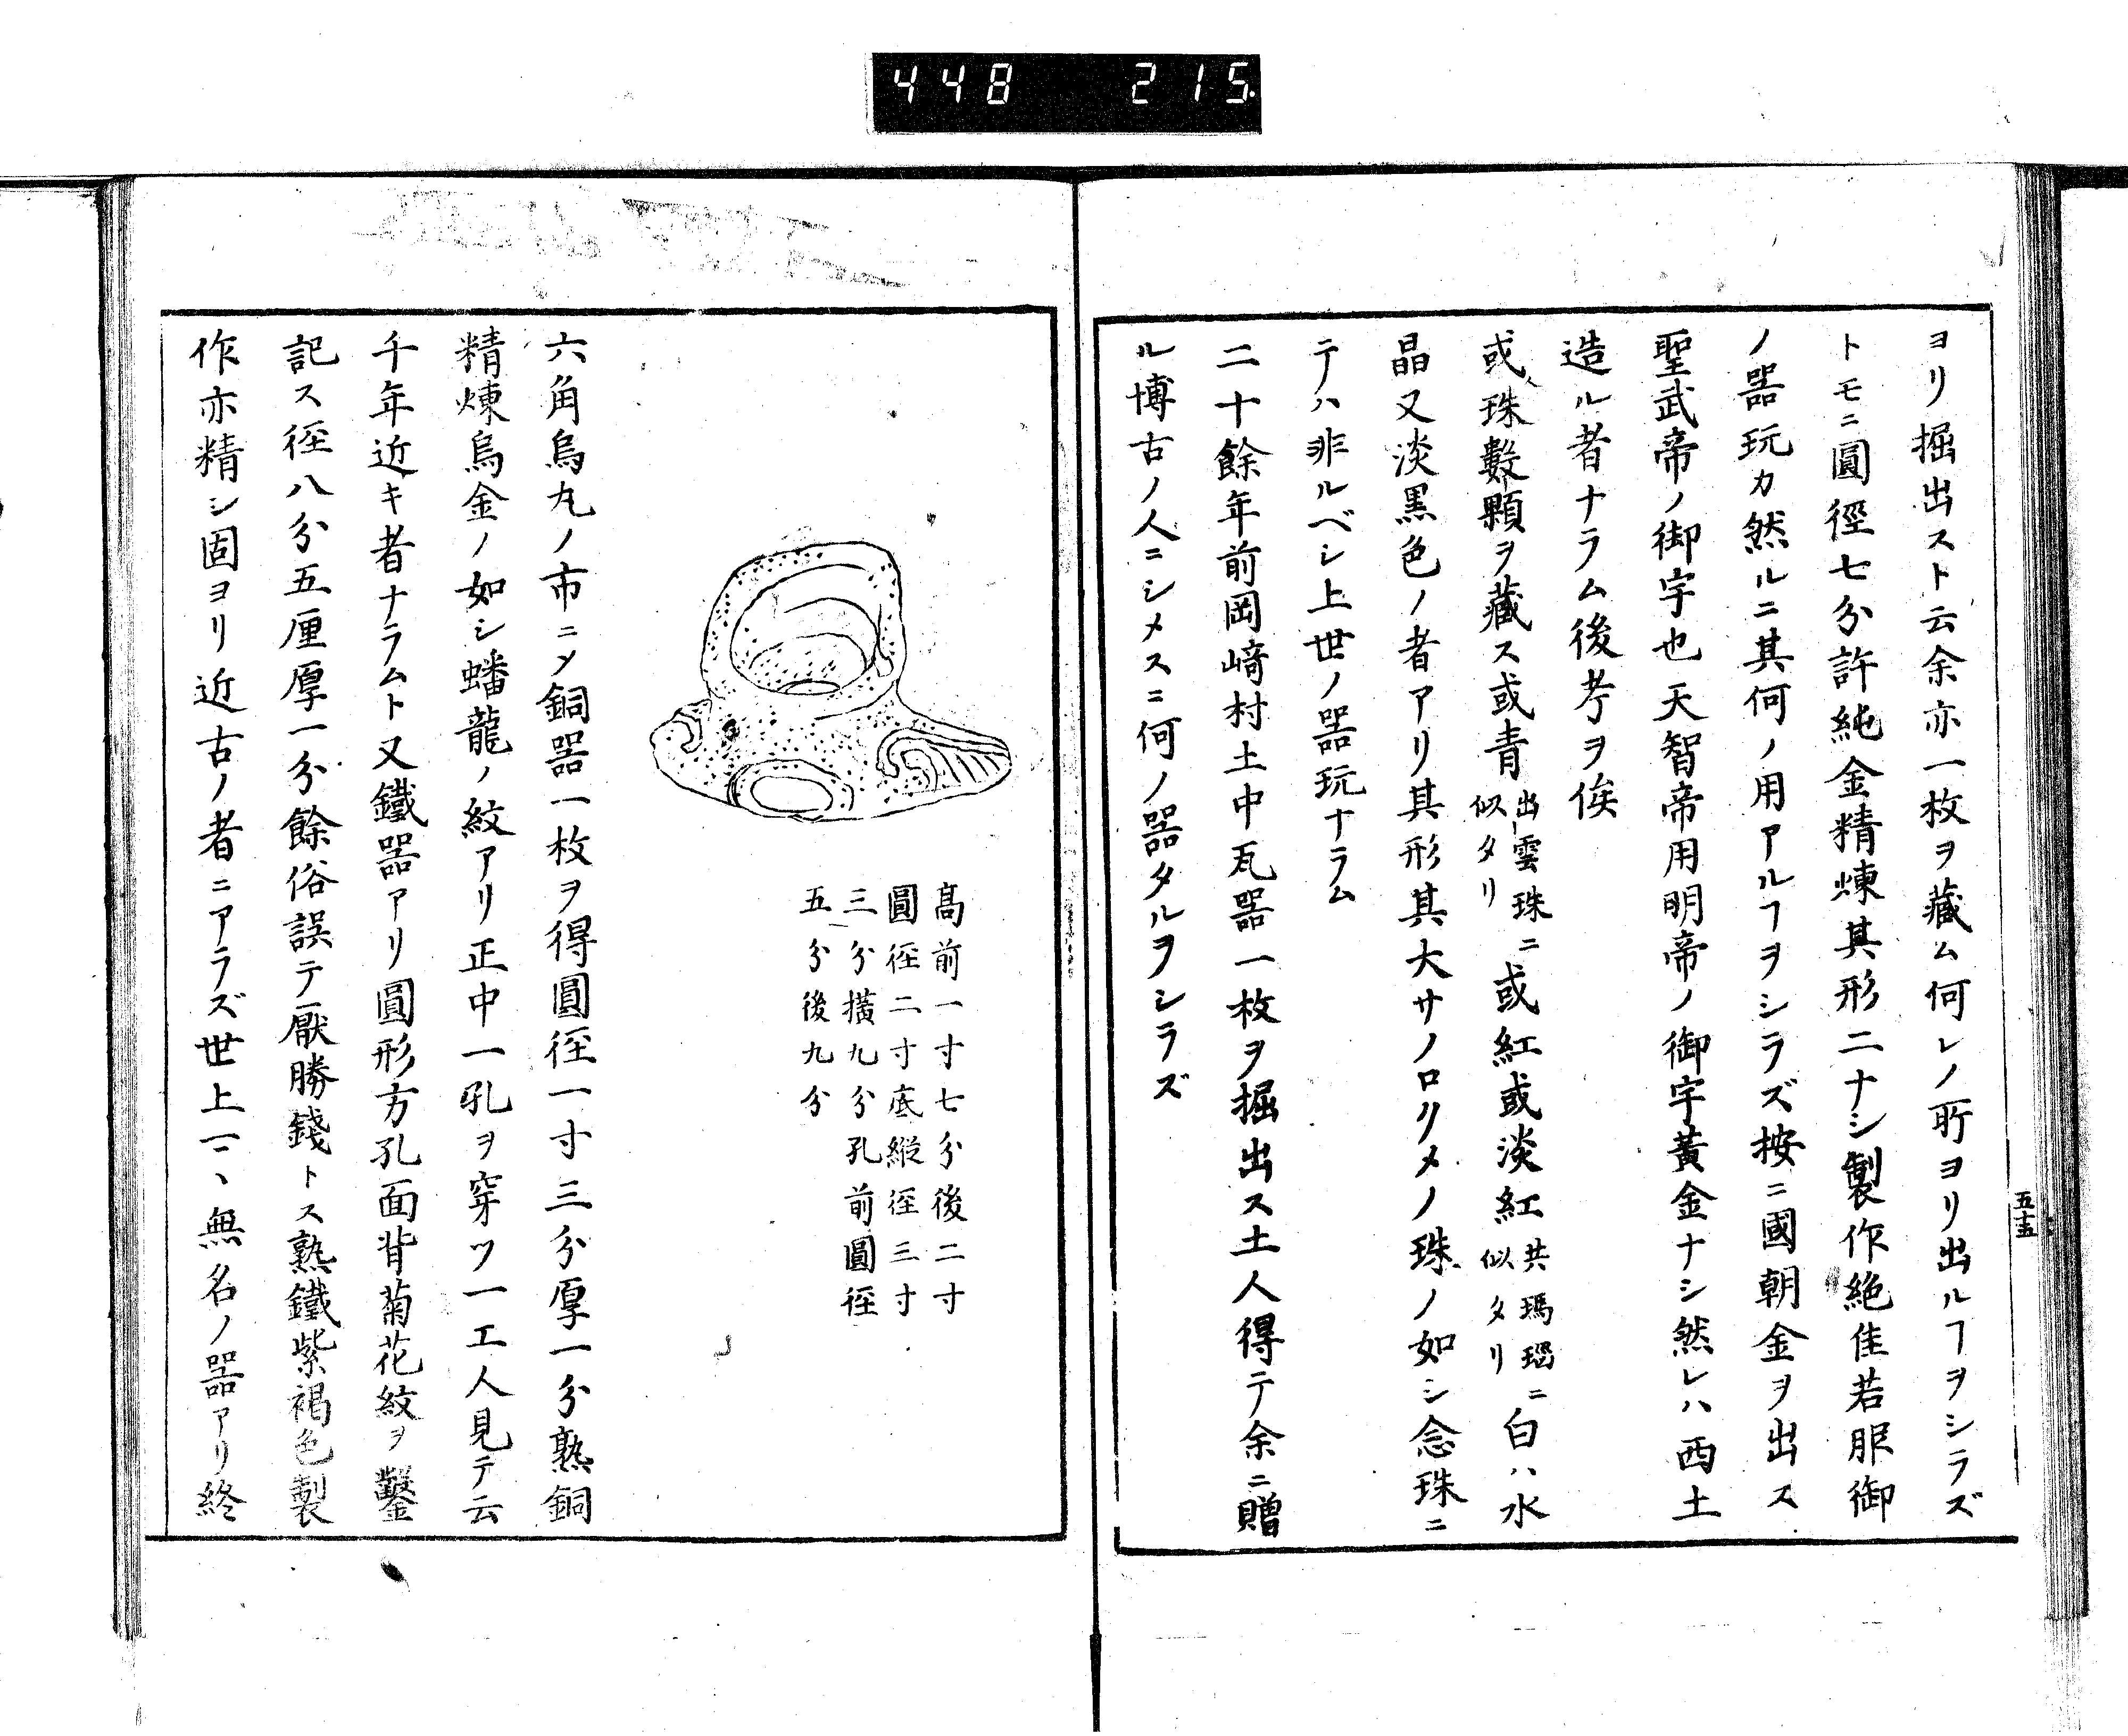 448 215
ヨリ掘出スト云余亦一枚ヲ藏ム何レノ所ヨリ出ルヿヲシラズ
トモニ圓徑七分許純金精煉其形二ナシ製作絶佳若服御
ノ器玩カ然ルニ其何ノ用アルヿヲシラズ按ニ國朝金ヲ出ス
聖武帝ノ御宇也天智帝用明帝ノ御宇黃金ナシ然レハ西土
造ル者ナラム後考ヲ俟
或ハ珠數顆ヲ藏ス或青出雲珠ニ似タリ或紅或淡紅共瑪瑙ニ似タリ白ハ水
晶又淡黒色ノ者アリ其形其大サノロリメノ珠ノ如シ念珠ニ
テハ非ルベシ上世ノ器玩ナラム
二十餘年前岡﨑村土中瓦器一枚ヲ掘出ス土人得テ余ニ贈
ル博古ノ人ニシメスニ何ノ器タルヲシラズ
五十五
高前一寸七分後二寸
圓径二寸底縦径三寸
三分横九分孔前圓径
五分後九分
六角烏丸ノ市ニメ銅器一枚ヲ得圓径一寸三分厚一分熟銅
精煉烏金ノ如シ蟠龍ノ紋アリ正中一孔ヲ穿ツ一工人見テ云
千年近キ者ナラムト又鐵器アリ圓形方孔面背菊花紋ヲ鑿
記ス径八分五厘厚一分餘俗誤テ厭勝錢トス熟鐵紫褐色製
作亦精シ固ヨリ近古ノ者ニアラズ世上一ヽ無名ノ器アリ終